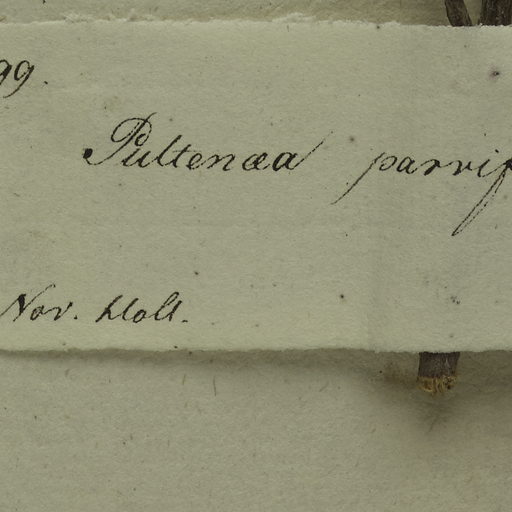 99.
Pultenæa parvif
Nov. Holl.